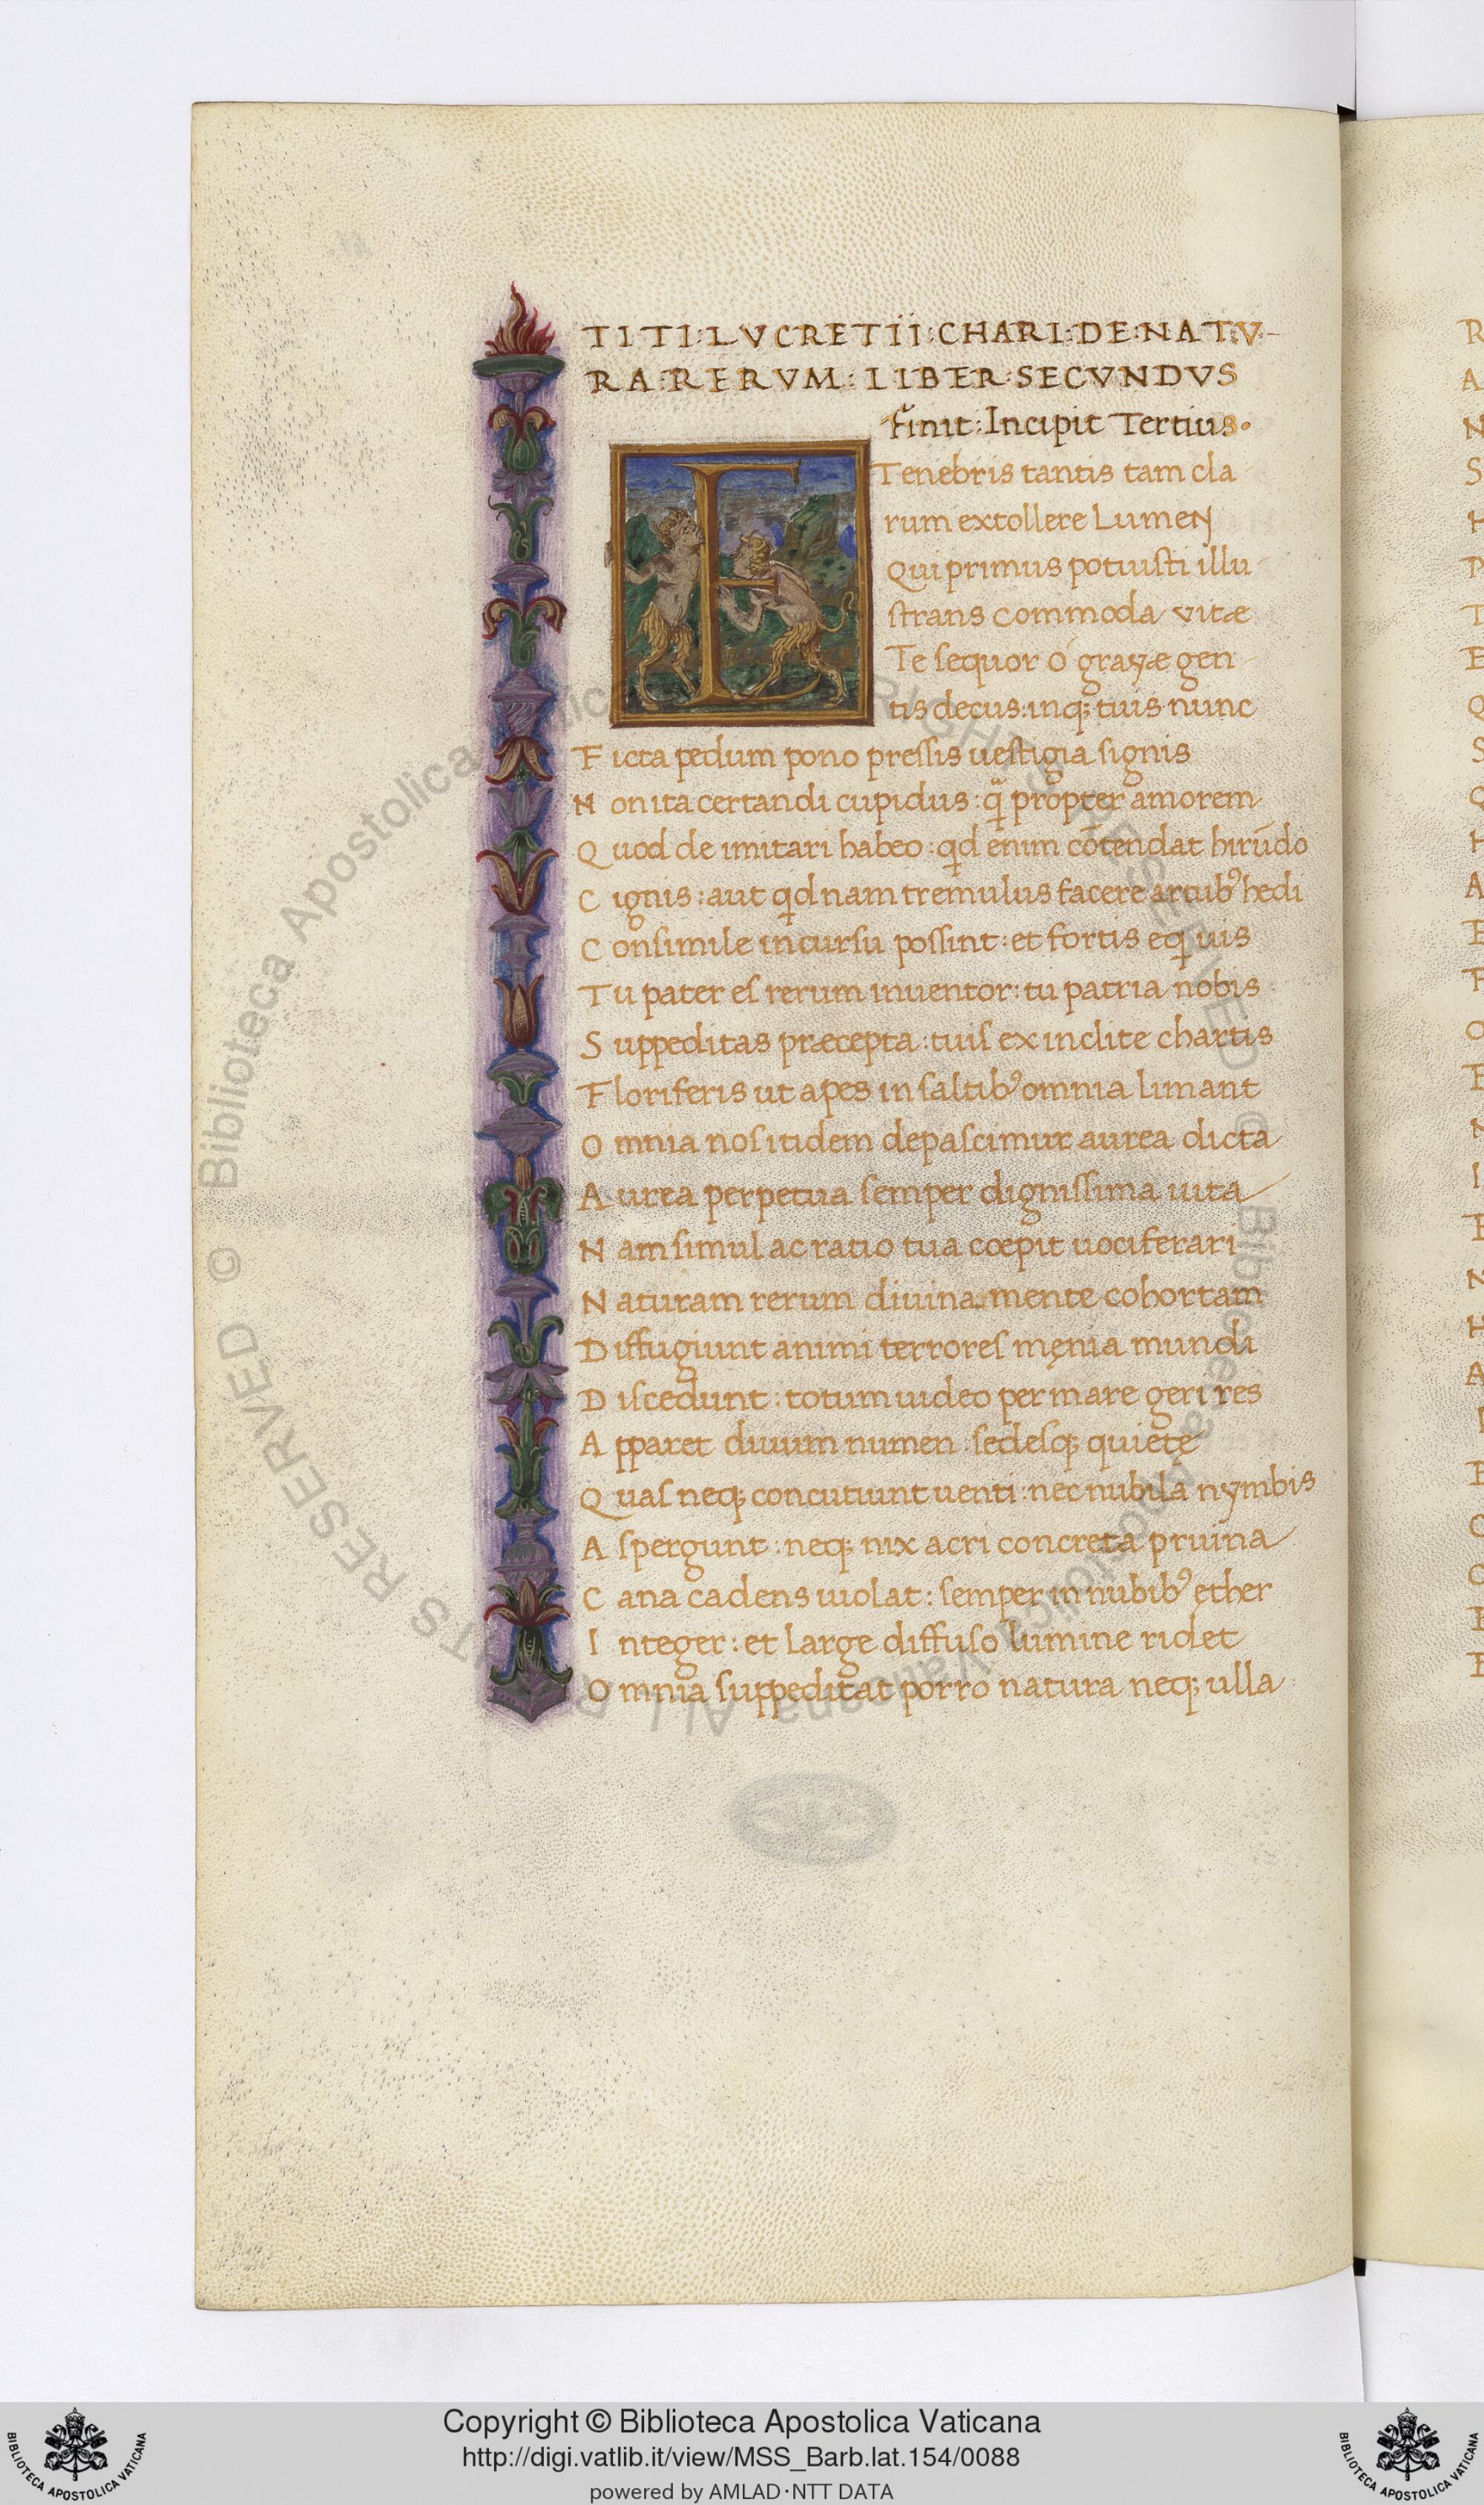 TITI:LVCRETII:CHARI:DE:NAT:V-
RA:RERVM:LIBER:SECVNDVS
Finit:Incipit Tertius.
E Tenebris tantis tam cla
rum extollere Lumen
Qui primus potuisti illu
strans commoda vitæ
Te sequor o grayæ gen
tis decus:inq; tuis nunc
Ficta pedum pono pressis uestigia signis
Non ita certandi cupidus: q̃ propter amorem
Quod de imitari habeo: qd enim cōtendat hirūdo
Cignis: aut qd nam tremulus facere artub⁹ hedi
Consimile in cursu possint: et fortis equis
Tu pater es rerum inuentor: tu patria nobis
Suppeditas præcepta: tuis ex inclite chartis
Floriferis ut apes in saltib⁹ omnia limant
Omnia nos itidem depascimur aurea dicta
Aurea perpetua semper dignissima uita
Nam simul ac ratio tua cœpit uociferari
Naturam rerum diuina mente cohortam
Diffugiunt animi terrores męnia mundi
Discedunt: totum uideo per mare geri res
Apparet diuum numen: sedesq; quietę
Quas neq; concutiunt uenti: nec nubila nymbis
Aspergunt: neq; nix acri concreta pruina
Cana cadens uiolat: semper in nubib⁹ ęther
Integer: et large diffuso lumine ridet
Omnia suppeditat porro natura neq; ulla
© Biblioteca Apostolica Vaticana ALL RIGHTS RESERVED
Copyright © Biblioteca Apostolica Vaticana
http://digi.vatlib.it/view/MSS_Barb.lat.154/0088
powered by AMLAD·NTT DATA
BIBLIOTECA APOSTOLICA VATICANA
BIBLIOTECA APOSTOLICA VATICANA